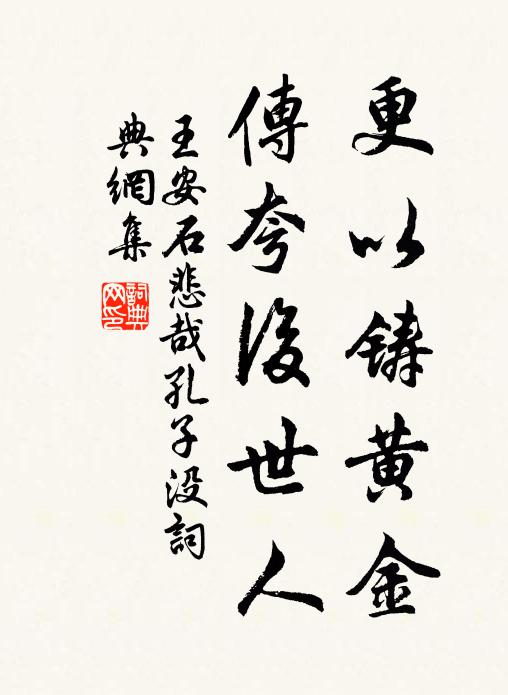 更以鋳黄金
傳夸後世人
王安石悲哉孔子没詞
典網集
詞典
网印